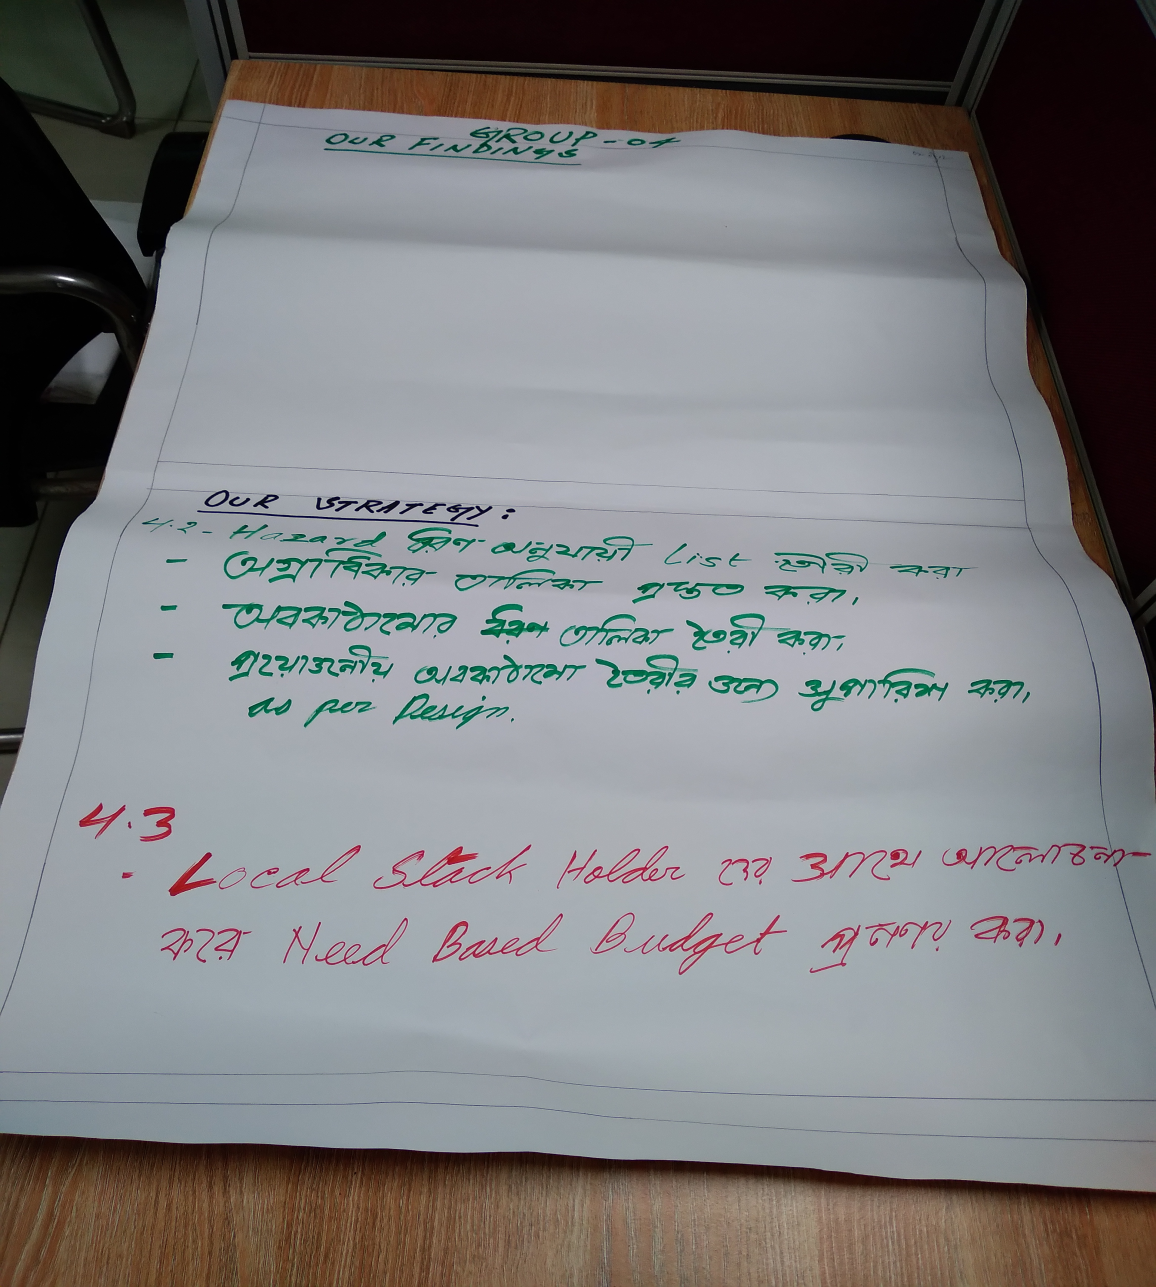 GROUP-04
OUR FINDINGS
OUR STRATEGY:
4.2- Hazard ধরণ অনুযায়ী List তৈরী করা
- অগ্রাধিকার তালিকা প্রস্তুত করা,
- অবকাঠামোর তালিকা তৈরী করা,
- প্রয়োজনীয় অবকাঠামো তৈরীর জন্য সুপারিশ করা,
as per Design.
4.3
- Local Stack Holder দের সাথে আলোচনা
করে Need Based Budget প্রনণয় করা,